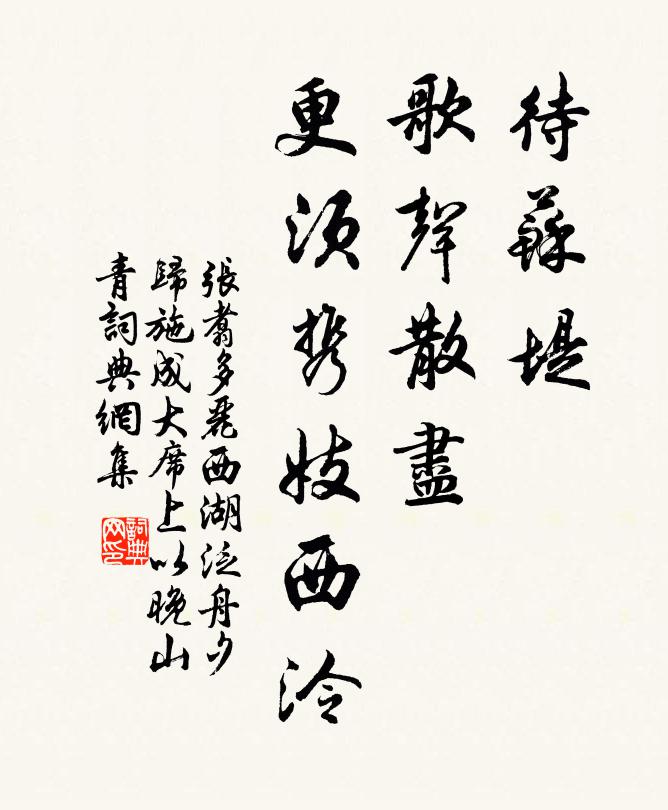 待蘇堤
歌聲散盡
更須携妓西泠
張翥多麗西湖泛舟夕
歸施成大席上以晚山
青詞典網集
詞典
网印